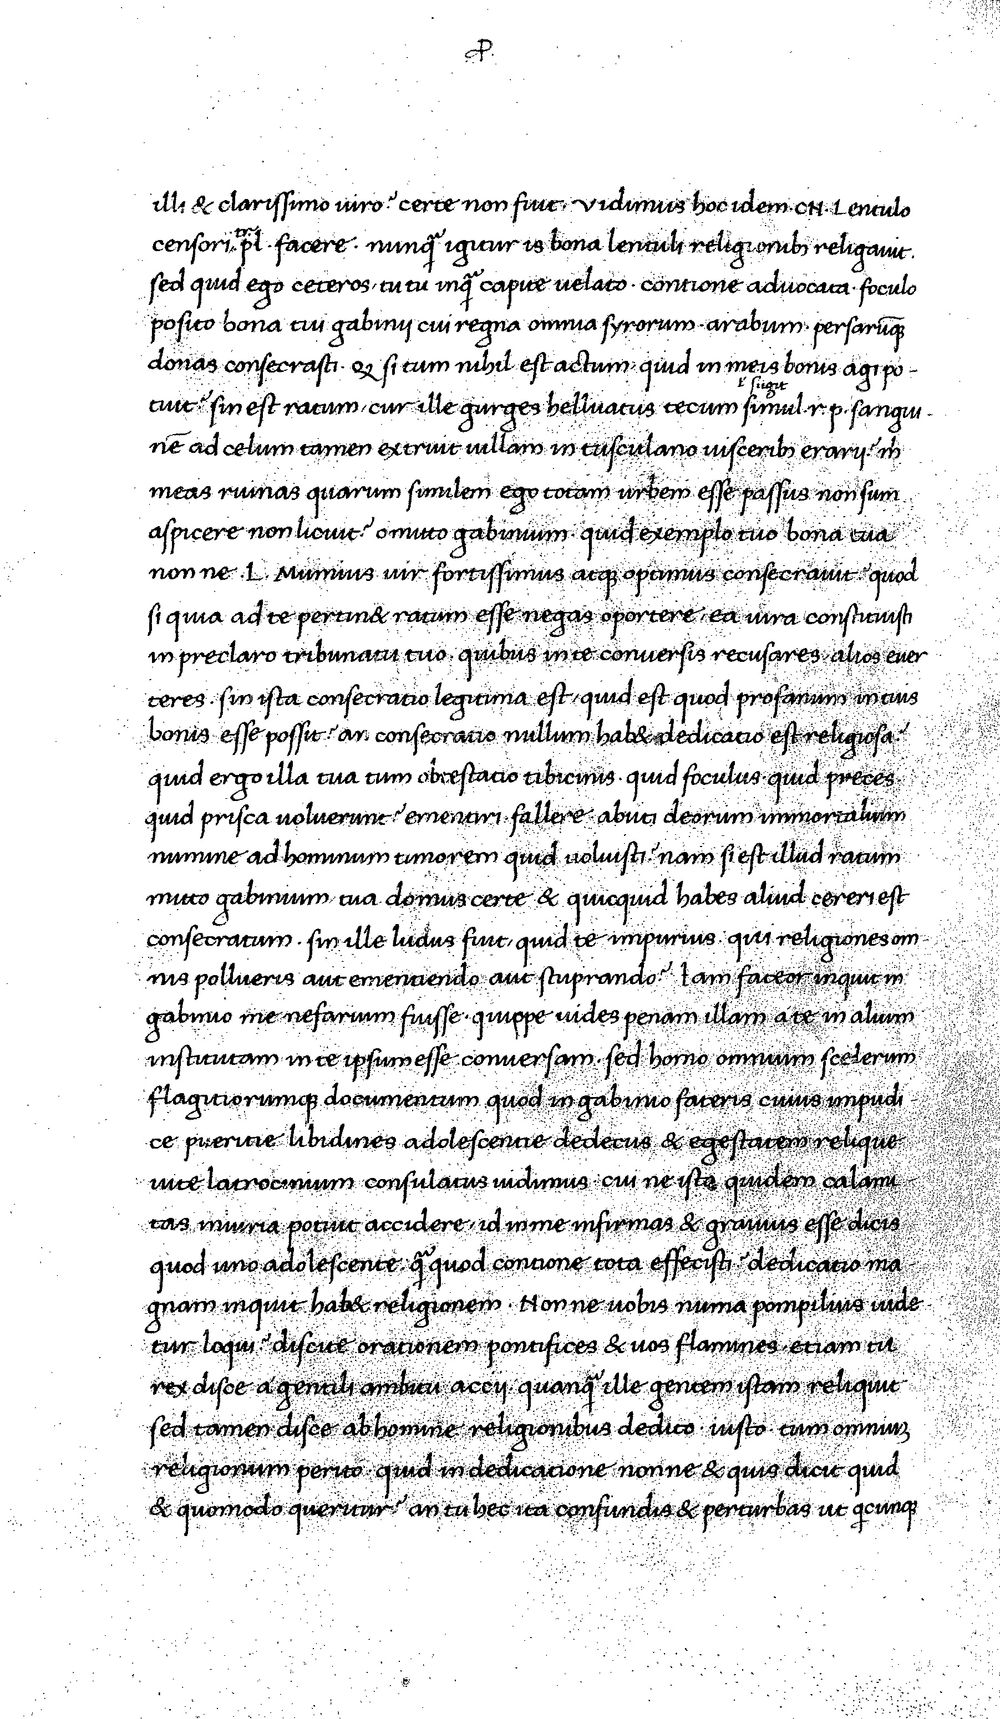 illi & clarissimo uiro? certe non fuit. Vidimus hoc idem. CN. Lentulo
censori. tr. pl. facere. nunq̃ igitur is bona lentuli religionib; religauit.
sed quid ego ceteros. tu tu inq̃ capite uelato. contione aduocata. foculo
posito bona tui gabinij cui regna omnia syrorum. arabum. persarūq;
donas consecrasti. qđ si tum nihil est actum. quid in meis bonis agi po-
tuit? sin est ratum, cur ille gurges helluatus tecum simul. r. p. sangui-
nē ad celum tamen extruit uillam in tusculano uiscerib; erarij? m̄
meas ruinas quarum similem ego totam urbem esse passus non sum
aspicere non licuit? omitto gabinium. quid exemplo tuo bona tua
non ne. L. Mumius uir fortissimus atq; optimus consecrauit? quod
si quia ad te pertin& ratum esse negas oportere, ea iura constituisti
in preclaro tribunatu tuo. quibus in te conuersis recusares. alios euer
teres. sin ista consecratio legitima est, quid est quod profanum in tuis
bonis esse possit? an consecratio nullum hab& dedicatio est religiosa?
quid ergo illa tua tum obtestatio tibicinis. quid foculus. quid preces.
quid prisca uoluerunt? ementiri. fallere. abuti deorum immortalium
numine ad hominum timorem quid uoluisti? nam si est illud ratum
mitto gabinium, tua domus certe & quicquid habes aliud cereri est
consecratum. sin ille ludus fuit, quid te impurius. qui religiones om-
nis pollueris aut ementiendo aut stuprando? Iam fateor inquit in
gabinio me nefarium fuisse. quippe uides penam illam a te in alium
institutam in te ipsum esse conuersam. sed homo omnium scelerum
flagitiorumq; documentum quod in gabinio fateris cuius impudi-
ce pueritie libidines adolescentie dedecus & egestatem relique
uite latrocinium consulatus uidimus. cui ne ista quidem calami-
tas iniuria potuit accidere, id in me infirmas & grauius esse dicis
quod uno adolescente. q̃ quod contione tota effecisti? dedicatio ma-
gnam inquit hab& religionem. Non ne uobis numa pompilius uide
tur loqui? discite orationem pontifices & uos flamines. etiam tu
rex disce a gentili ambitu accij. quanq̃ ille gentem istam reliquit
sed tamen disce ab homine religionibus dedito. iusto. tum omniuȝ
religionum perito. quid in dedicatione nonne & quis dicit quid
& quomodo queritur? an tu hec ita confundis & perturbas ut q̇cunq;